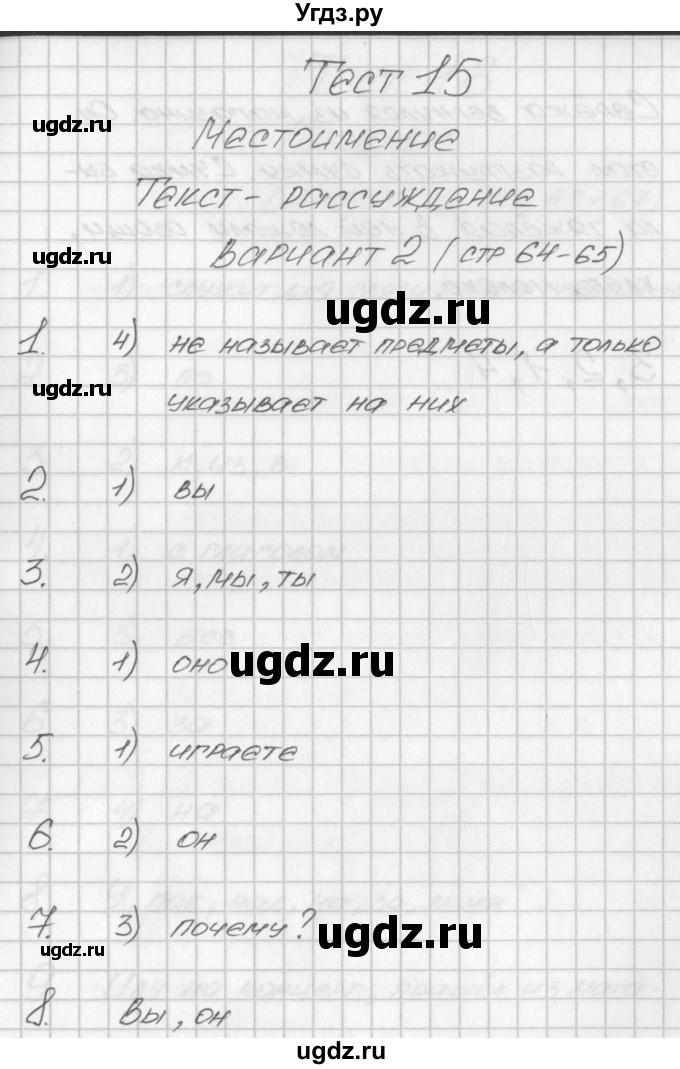 Угдз.ру
Тест 15
Местоимение
Текст - рассуждение
Вариант 2 (стр 64-65)
1. 4) не называет предметы, а только
указывает на них
2. 1) вы
3. 2) я, мы, ты
4. 1) оно
5. 1) играете
6. 2) он
7. 3) почему?
8. Вы, он
ugdz.ru
ugdz.ru
ugdz.ru
ugdz.ru
ugdz.ru
ugdz.ru
ugdz.ru
ugdz.ru